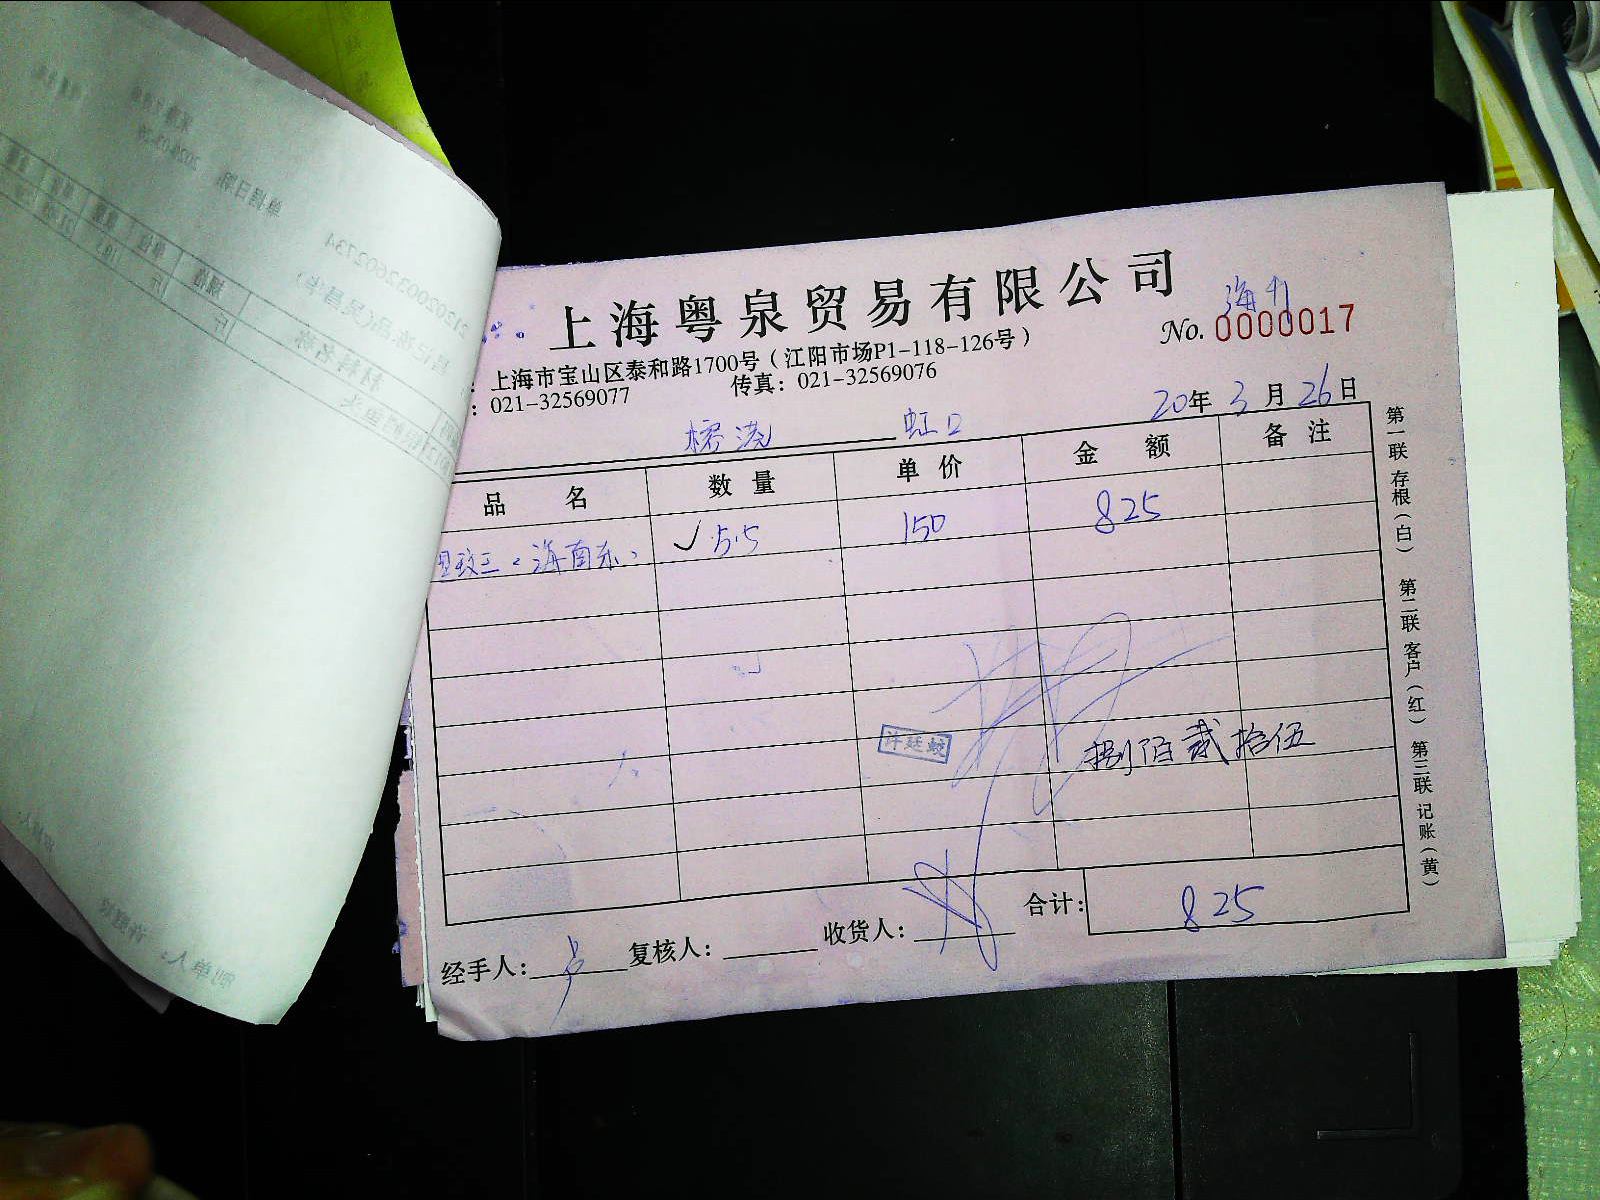 上海粤泉贸易有限公司
No. 0000017
：上海市宝山区泰和路1700号（江阳市场P1-118-126号）
：021-32569077 传真：021-32569076
20年3月26日
虹口
品名 数量 单价 金额 备注
海南东 5.5 150 825
许廷蛟
捌佰贰拾伍
合计：825
经手人： 复核人： 收货人：
第一联 存根（白） 第二联 客户（红） 第三联 记账（黄）